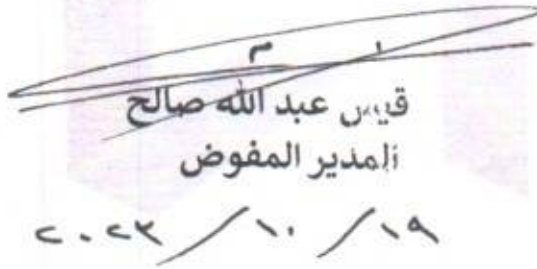 قيس عبد الله صالح
المدير المفوض
٢٠٢٣/١٠/١٩